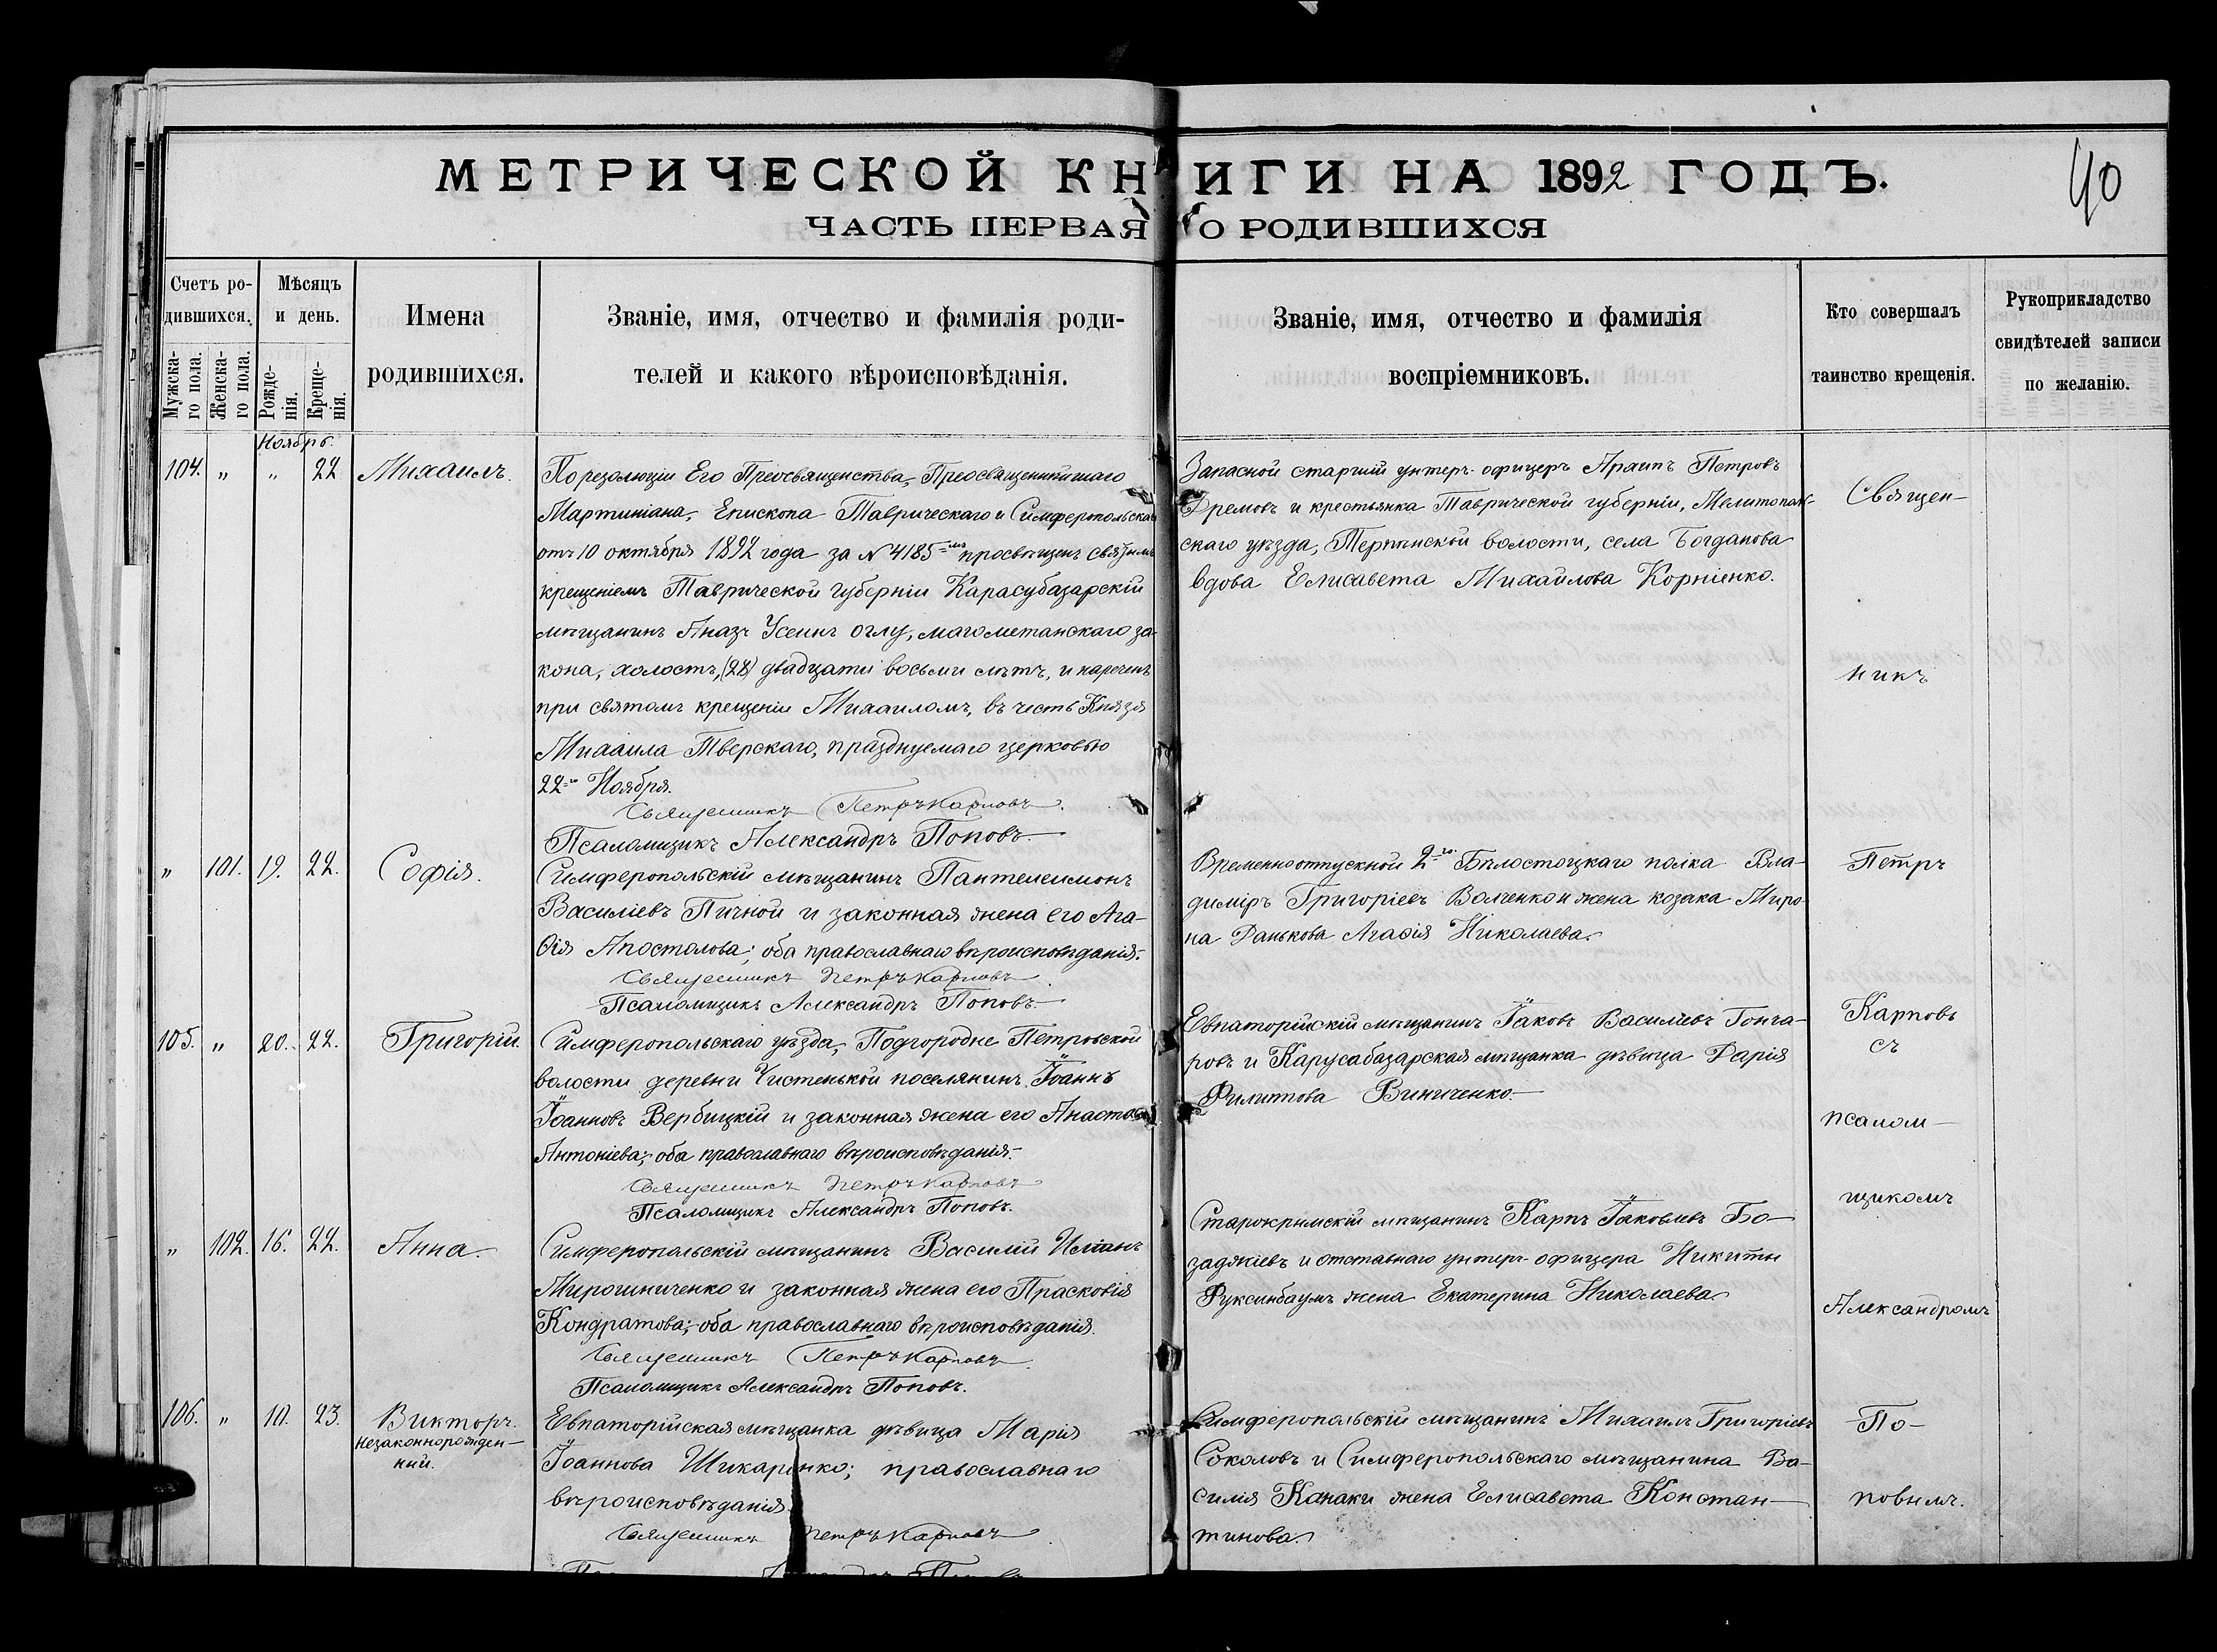 МЕТРИЧЕСКОЙ КНИГИ НА 1892 ГОДЪ.
40
ЧАСТЬ ПЕРВАЯ О РОДИВШИХСЯ
Счетъ ро-
дившихся.
Мужска-
го пола.
Женска-
го пола.
Мѣсяцъ
и день.
Рожде-
нія.
Креще-
нія.
Имена
родившихся.
Званіе, имя, отчество и фамилія роди-
телей и какого вѣроисповѣданія.
Званіе, имя, отчество и фамилія
воспріемниковъ.
Кто совершалъ
таинство крещенія.
Рукоприкладство
свидѣтелей записи
по желанію.
Ноябрь.
104. " " 22 Михаилъ.
По резолюціи Его Преосвященства, Преосвященнѣйшаго
Мартиніана, Епископа Таврическаго и Симферопольска
отъ 10 октября 1892 года за N 4185 просвѣщенъ святымъ
крещеніемъ Таврической губерніи Карасубазарскій
мѣщанинъ Аназъ Усеинъ оглу, магометанскаго за-
кона, холостъ, (28) двадцати восьми лѣтъ, и нареченъ
при святомъ крещеніи Михаиломъ, въ честь Князя
Михаила Тверскаго, празднуемаго церковью
22го Ноября.
Священникъ Петръ Карповъ.
Псаломщикъ Александръ Поповъ.
Запасной старшій унтеръ-офицеръ Архипъ Петровъ
Дремовъ и крестьянка Таврической губерніи, Мелитополь-
скаго уѣзда, Терпѣнской волости, села Богданова
вдова Елисавета Михайлова Корніенко.
" 101. 19. 22. Софія.
Симферопольскій мѣщанинъ Пантелеимонъ
Василіевъ Пичной и законная жена его Ага-
ѳія Апостолова; оба православнаго вѣроисповѣданія.
Священникъ Петръ Карповъ.
Псаломщикъ Александръ Поповъ.
Временноотпускной 2го Бѣлостоцкаго полка Вла-
диміръ Григоріевъ Волченко и жена козака Миро-
на Данькова Агаѳія Николаева.
105. " 20. 22. Григорій.
Симферопольскаго уѣзда, Подгородне Петровской
волости деревни Чистенькой поселянинъ Іоаннъ
Іоанновъ Вербицкій и законная жена его Анаста
Антоніева; оба православнаго вѣроисповѣданія.
Священникъ Петръ Карповъ
Псаломщикъ Александръ Поповъ.
Евпаторійскій мѣщанинъ Іаковъ Василіевъ Гонча-
ровъ и Карусабазарская мѣщанка дѣвица Дарія
Филиппова Виниченко.
" 102. 16. 22. Анна.
Симферопольскій мѣщанинъ Василій
Мирошниченко и законная жена его Прасковія
Кондратова; оба православнаго вѣроисповѣданія.
Священникъ Петръ Карповъ
Псаломщикъ Александръ Поповъ.
Старокрымскій мѣщанинъ Карпъ Іаковлевъ Бо-
заджіевъ и отставнаго унтеръ-офицера Никиты
Фуксинбаумъ жена Екатерина Николаева.
106. " 10. 23. Викторъ.
Незаконнорожден-
ный.
Евпаторійская мѣщанка дѣвица Марія
Іоаннова Шикаренко; православнаго
вѣроисповѣданія.
Священникъ Петръ Карповъ.
Симферопольскій мѣщанинъ Михаилъ Григоріевъ
Соколовъ и Симферопольскаго мѣщанина Ва-
силія Канаки жена Елисавета Констан-
тинова.
Священ-
никъ
Петръ
Карповъ
съ
псалом-
щикомъ
Александромъ
По-
повымъ.